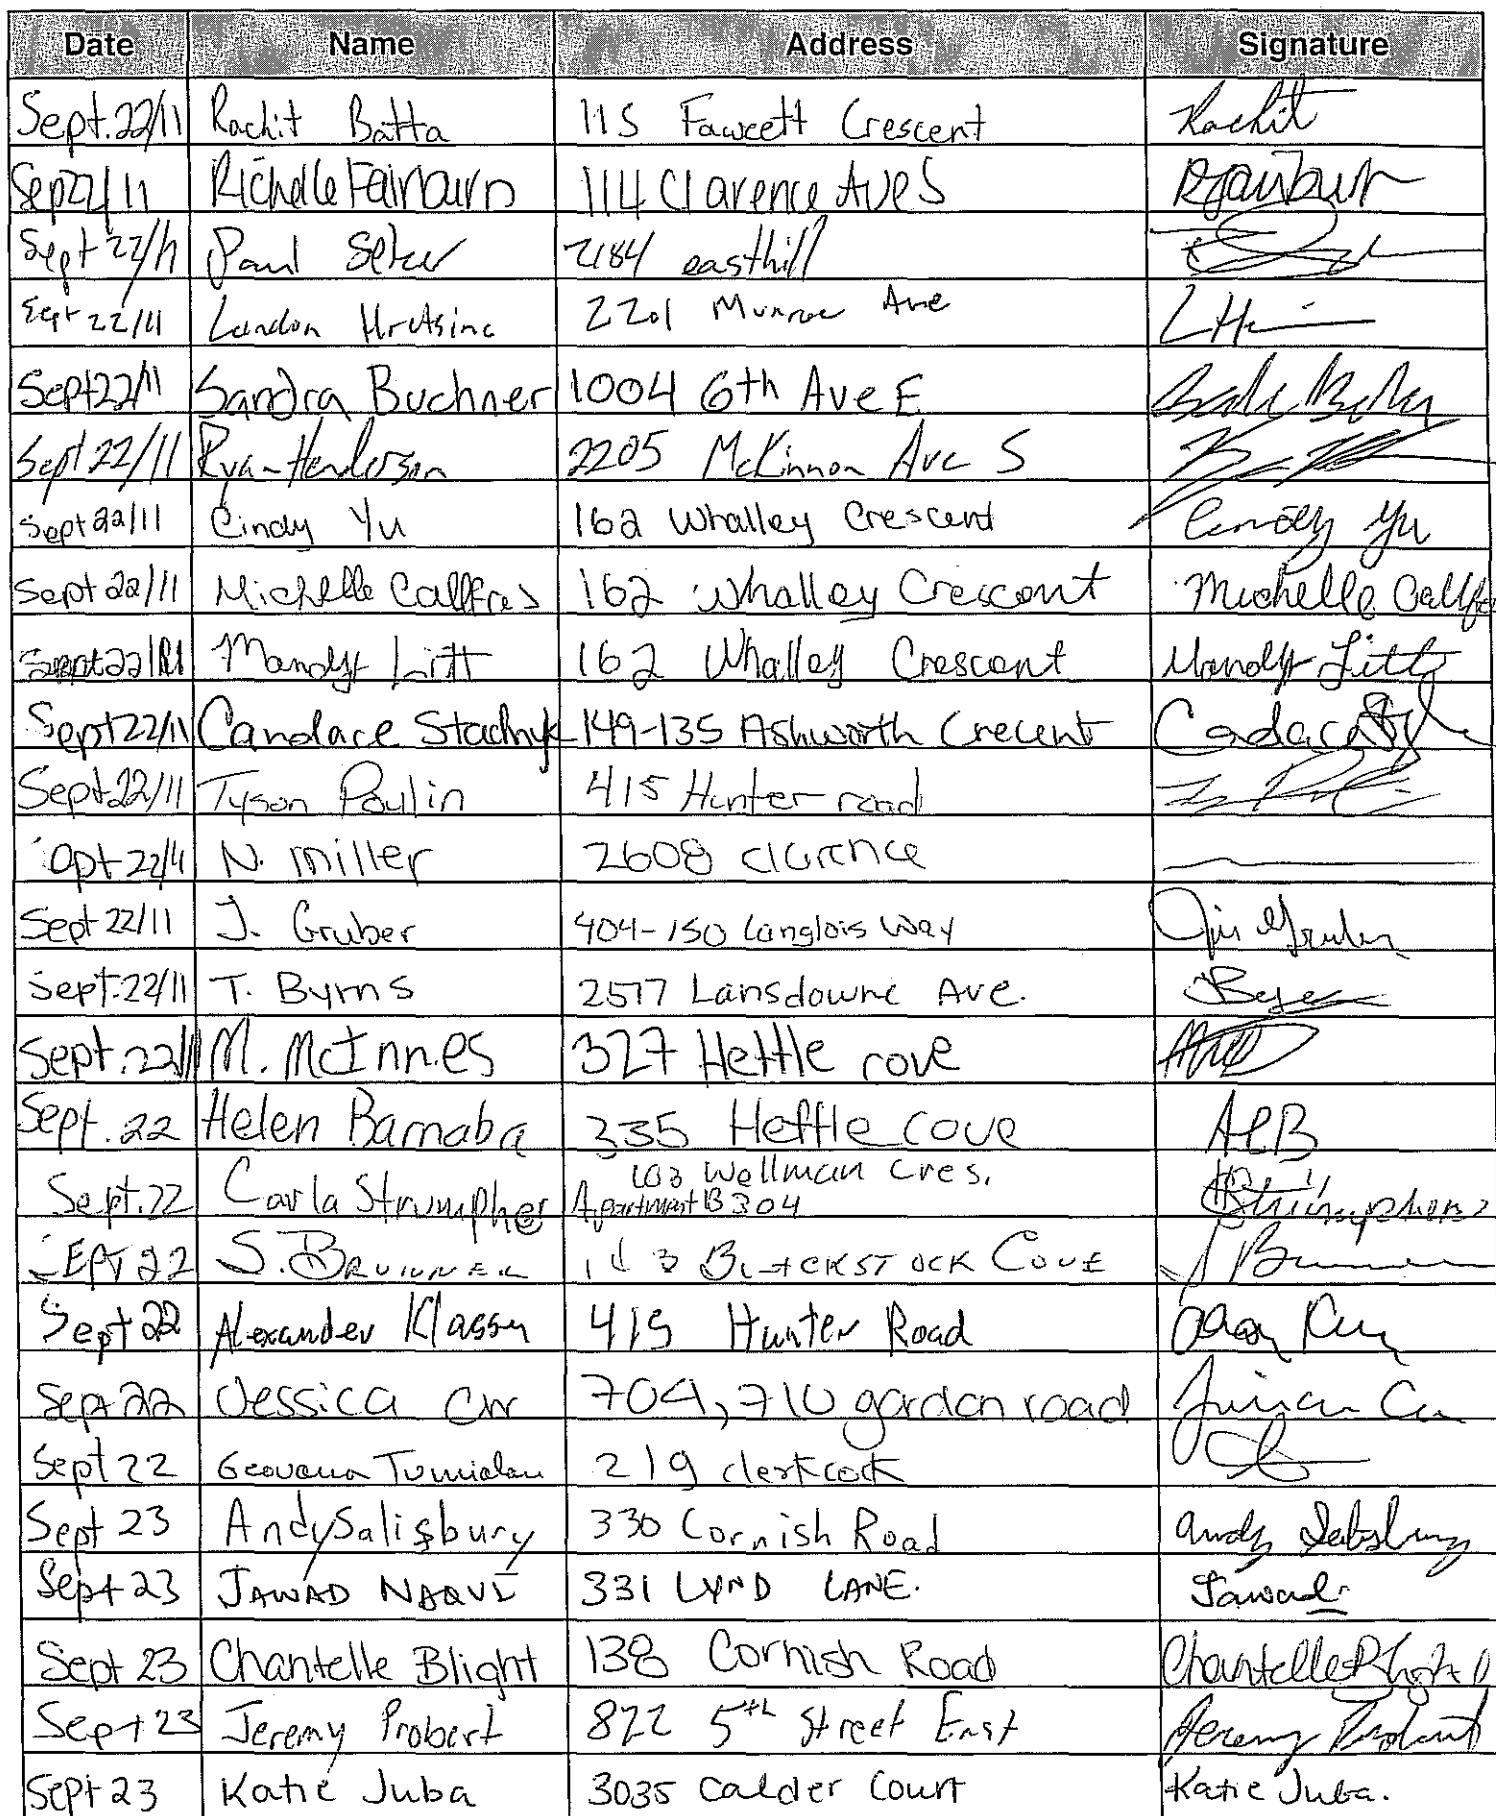 Date Name Address Signature
Sept.22/11 Rachit Batta 115 Fawcett Crescent Rachit
Sep22/11 Richelle Fairburn 114 Clarence Ave S
Sept 22/11 Paul 2184 easthill
Sept 22/11 Landon 2201 Munroe Ave
Sept22/11 Sandra Buchner 1004 6th Ave E
Sept 22/11 Ryan Henderson 2205 McKinnon Ave S
Sept 22/11 Cindy Yu 162 Whalley Crescent Cindy Yu
Sept 22/11 Michelle 162 Whalley Crescent Michelle
Sept 22/11 Mandy Litt 162 Whalley Crescent Mandy Litt
Sept 22/11 Candace Stachnyk 149-135 Ashworth Crecent
Sept 22/11 Tyson Paulin 415 Hunter road
22/11 N. miller 2608 clarence
Sept 22/11 J. Gruber 404-150 Langlois Way
Sept.22/11 T. Byrns 2517 Lansdowne Ave.
Sept.22/11 M. McInnes 327 Hettle cove
Sept. 22 Helen Barnaba 335 Hettle cove
103 Wellman Cres.
Sept.22 Carla Strumpher Apartment B304
SEPT 22 S. BLACKSTOCK COVE
Sept 22 Alexander 415 Hunter Road
Sept 22 Jessica 704, 710 gordon road
Sept 22 219
Sept 23 Andy Salisbury 330 Cornish Road Andy Salisbury
Sept 23 JAWAD NAQVI 331 LYND LANE. Jawad
Sept 23 Chantelle Blight 138 Cornish Road Chantelle Blight
Sept 23 Jeremy Probert 822 5th Street East Jeremy Probert
Sept 23 Katie Juba 3035 Calder Court Katie Juba.